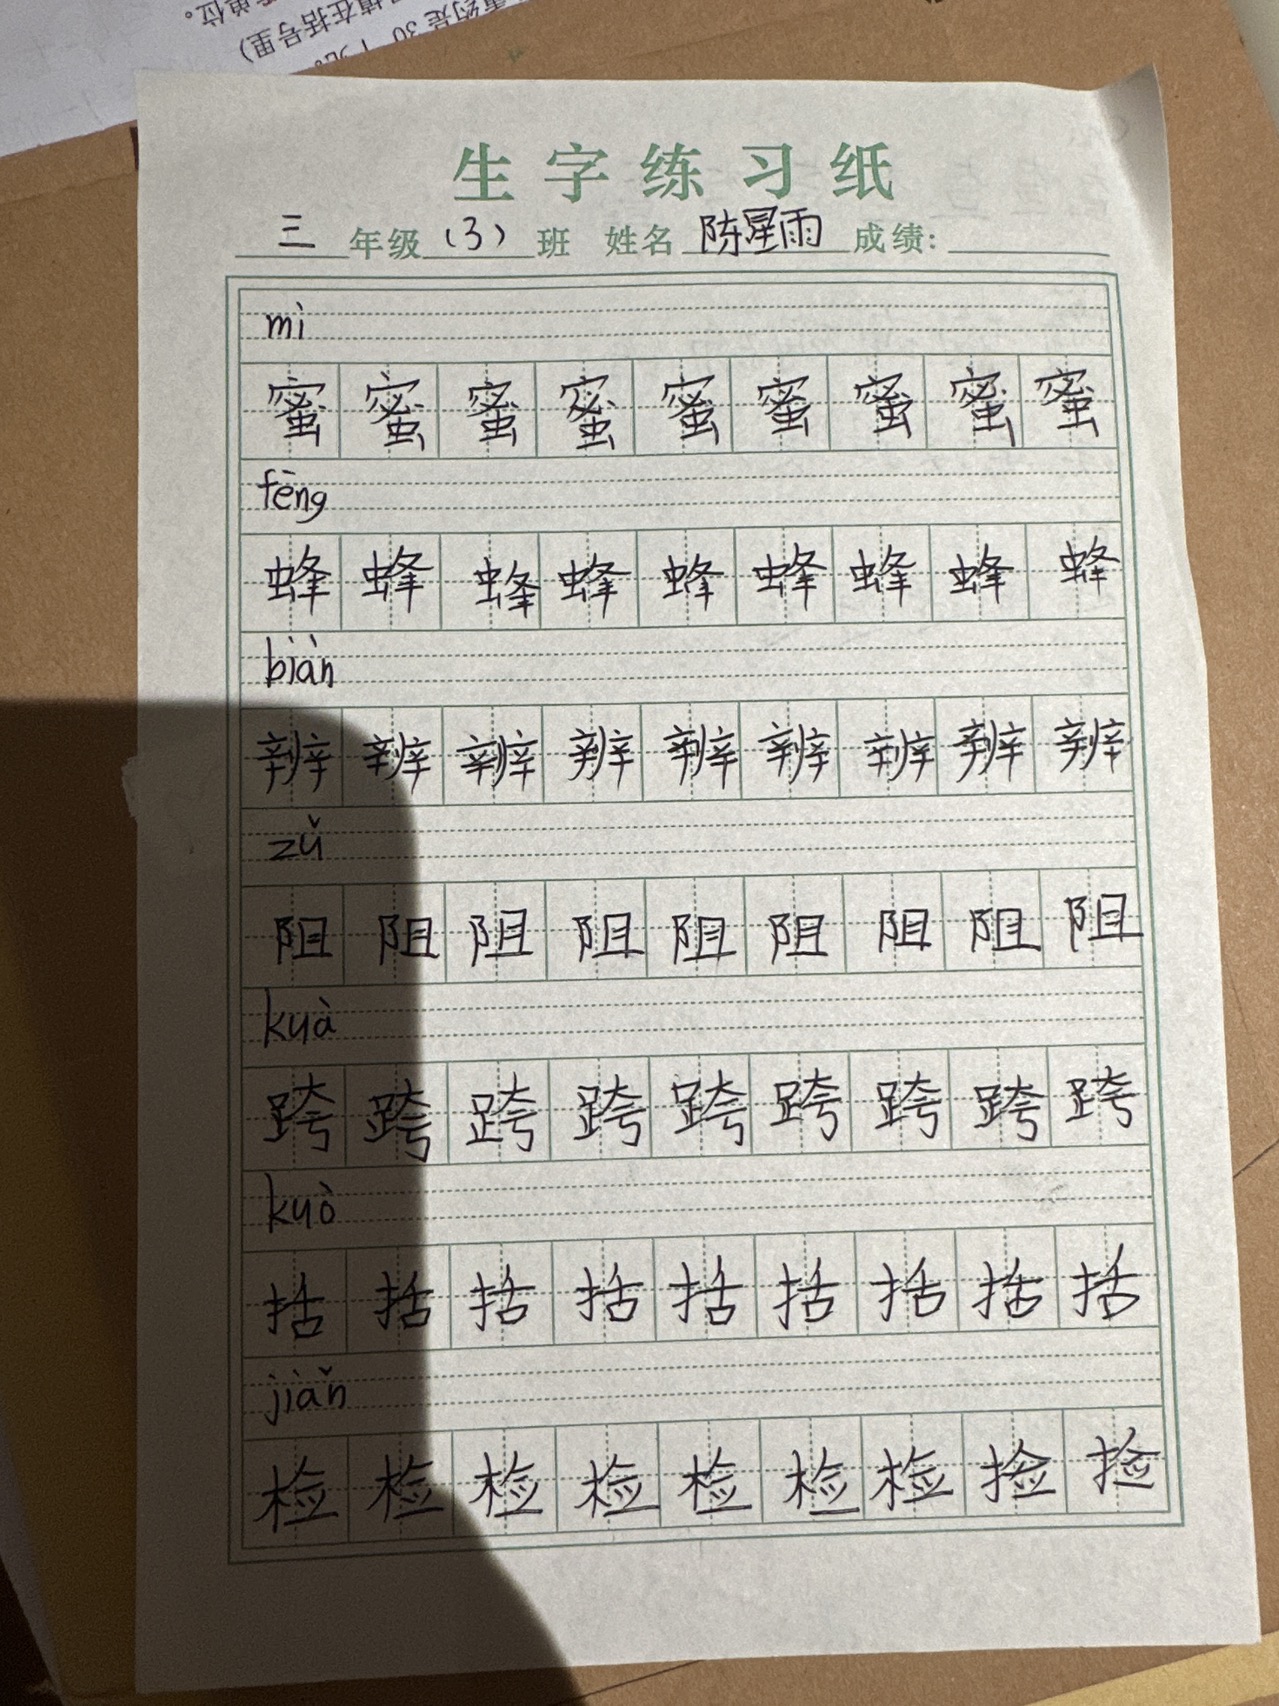 单位。
填在括号里）
生字练习纸
三年级（3）班 姓名 陈星雨 成绩：
mì
蜜 蜜 蜜 蜜 蜜 蜜 蜜 蜜 蜜
fēng
蜂 蜂 蜂 蜂 蜂 蜂 蜂 蜂 蜂
biàn
辨 辨 辨 辨 辨 辨 辨 辨 辨
zǔ
阻 阻 阻 阻 阻 阻 阻 阻 阻
kuà
跨 跨 跨 跨 跨 跨 跨 跨 跨
kuò
括 括 括 括 括 括 括 括 括
jiǎn
检 检 检 检 检 检 检 捡 捡